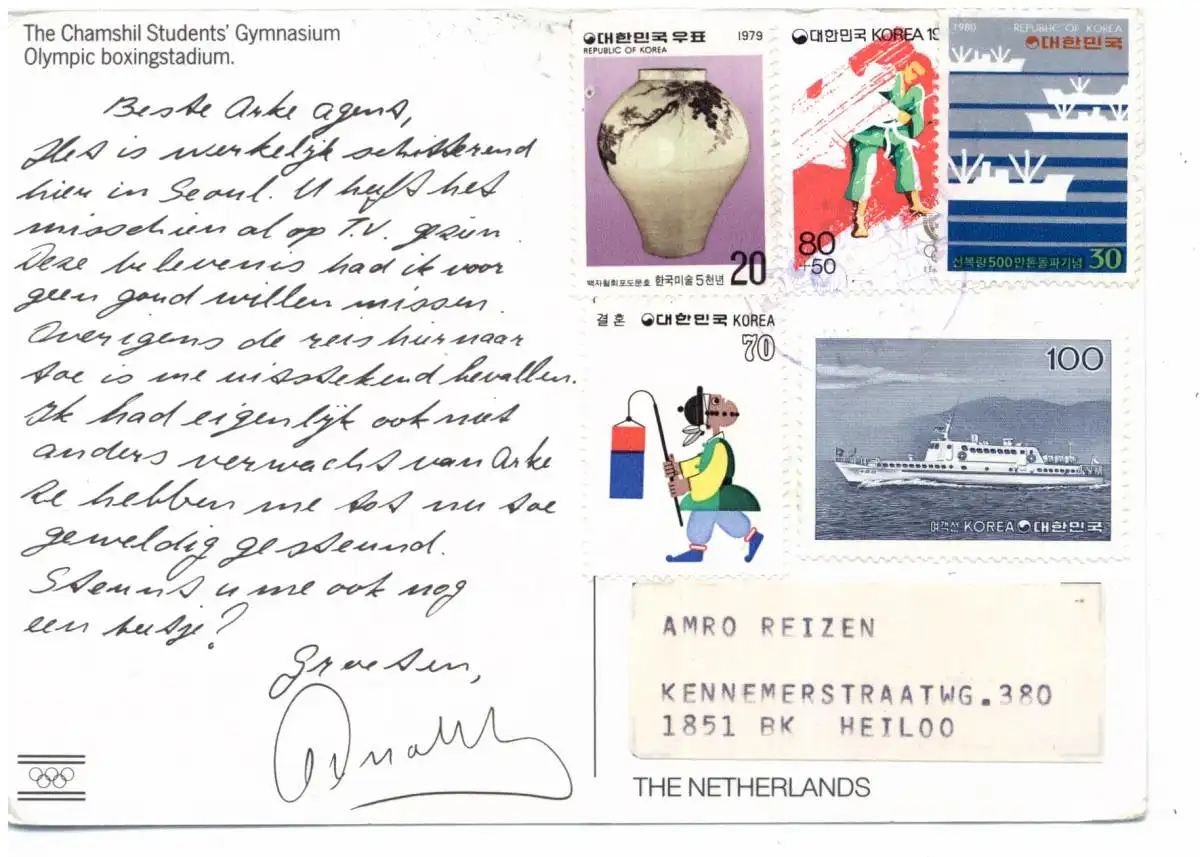 The Chamshil Students' Gymnasium
Olympic boxingstadium.
Beste Arke agent,
Het is werkelijk schitterend
hier in Seoul. U heeft het
misschien al op T.V. gezien.
Deze belevenis had ik voor
geen goud willen missen.
Overigens de reis hiernaar
toe is me uitstekend bevallen.
Ik had eigenlijk ook niet
anders verwacht van Arke
Ze hebben me tot nu toe
geweldig gesteund.
Steunt u me ook nog
een beetje?
Groeten,
대한민국우표 1979
REPUBLIC OF KOREA
20
백자철회포도문호 한국미술5천년
대한민국 KOREA 19
80
+50
1980 REPUBLIC OF KOREA
대한민국
선복량500만톤돌파기념 30
결혼 대한민국 KOREA
70
100
여객선 KOREA 대한민국
AMRO REIZEN
KENNEMERSTRAATWG.380
1851 BK HEILOO
THE NETHERLANDS